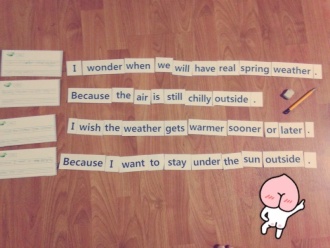 I wonder when we will have real spring weather .
Because the air is still chilly outside .
I wish the weather gets warmer sooner or later .
Because I want to stay under the sun outside .